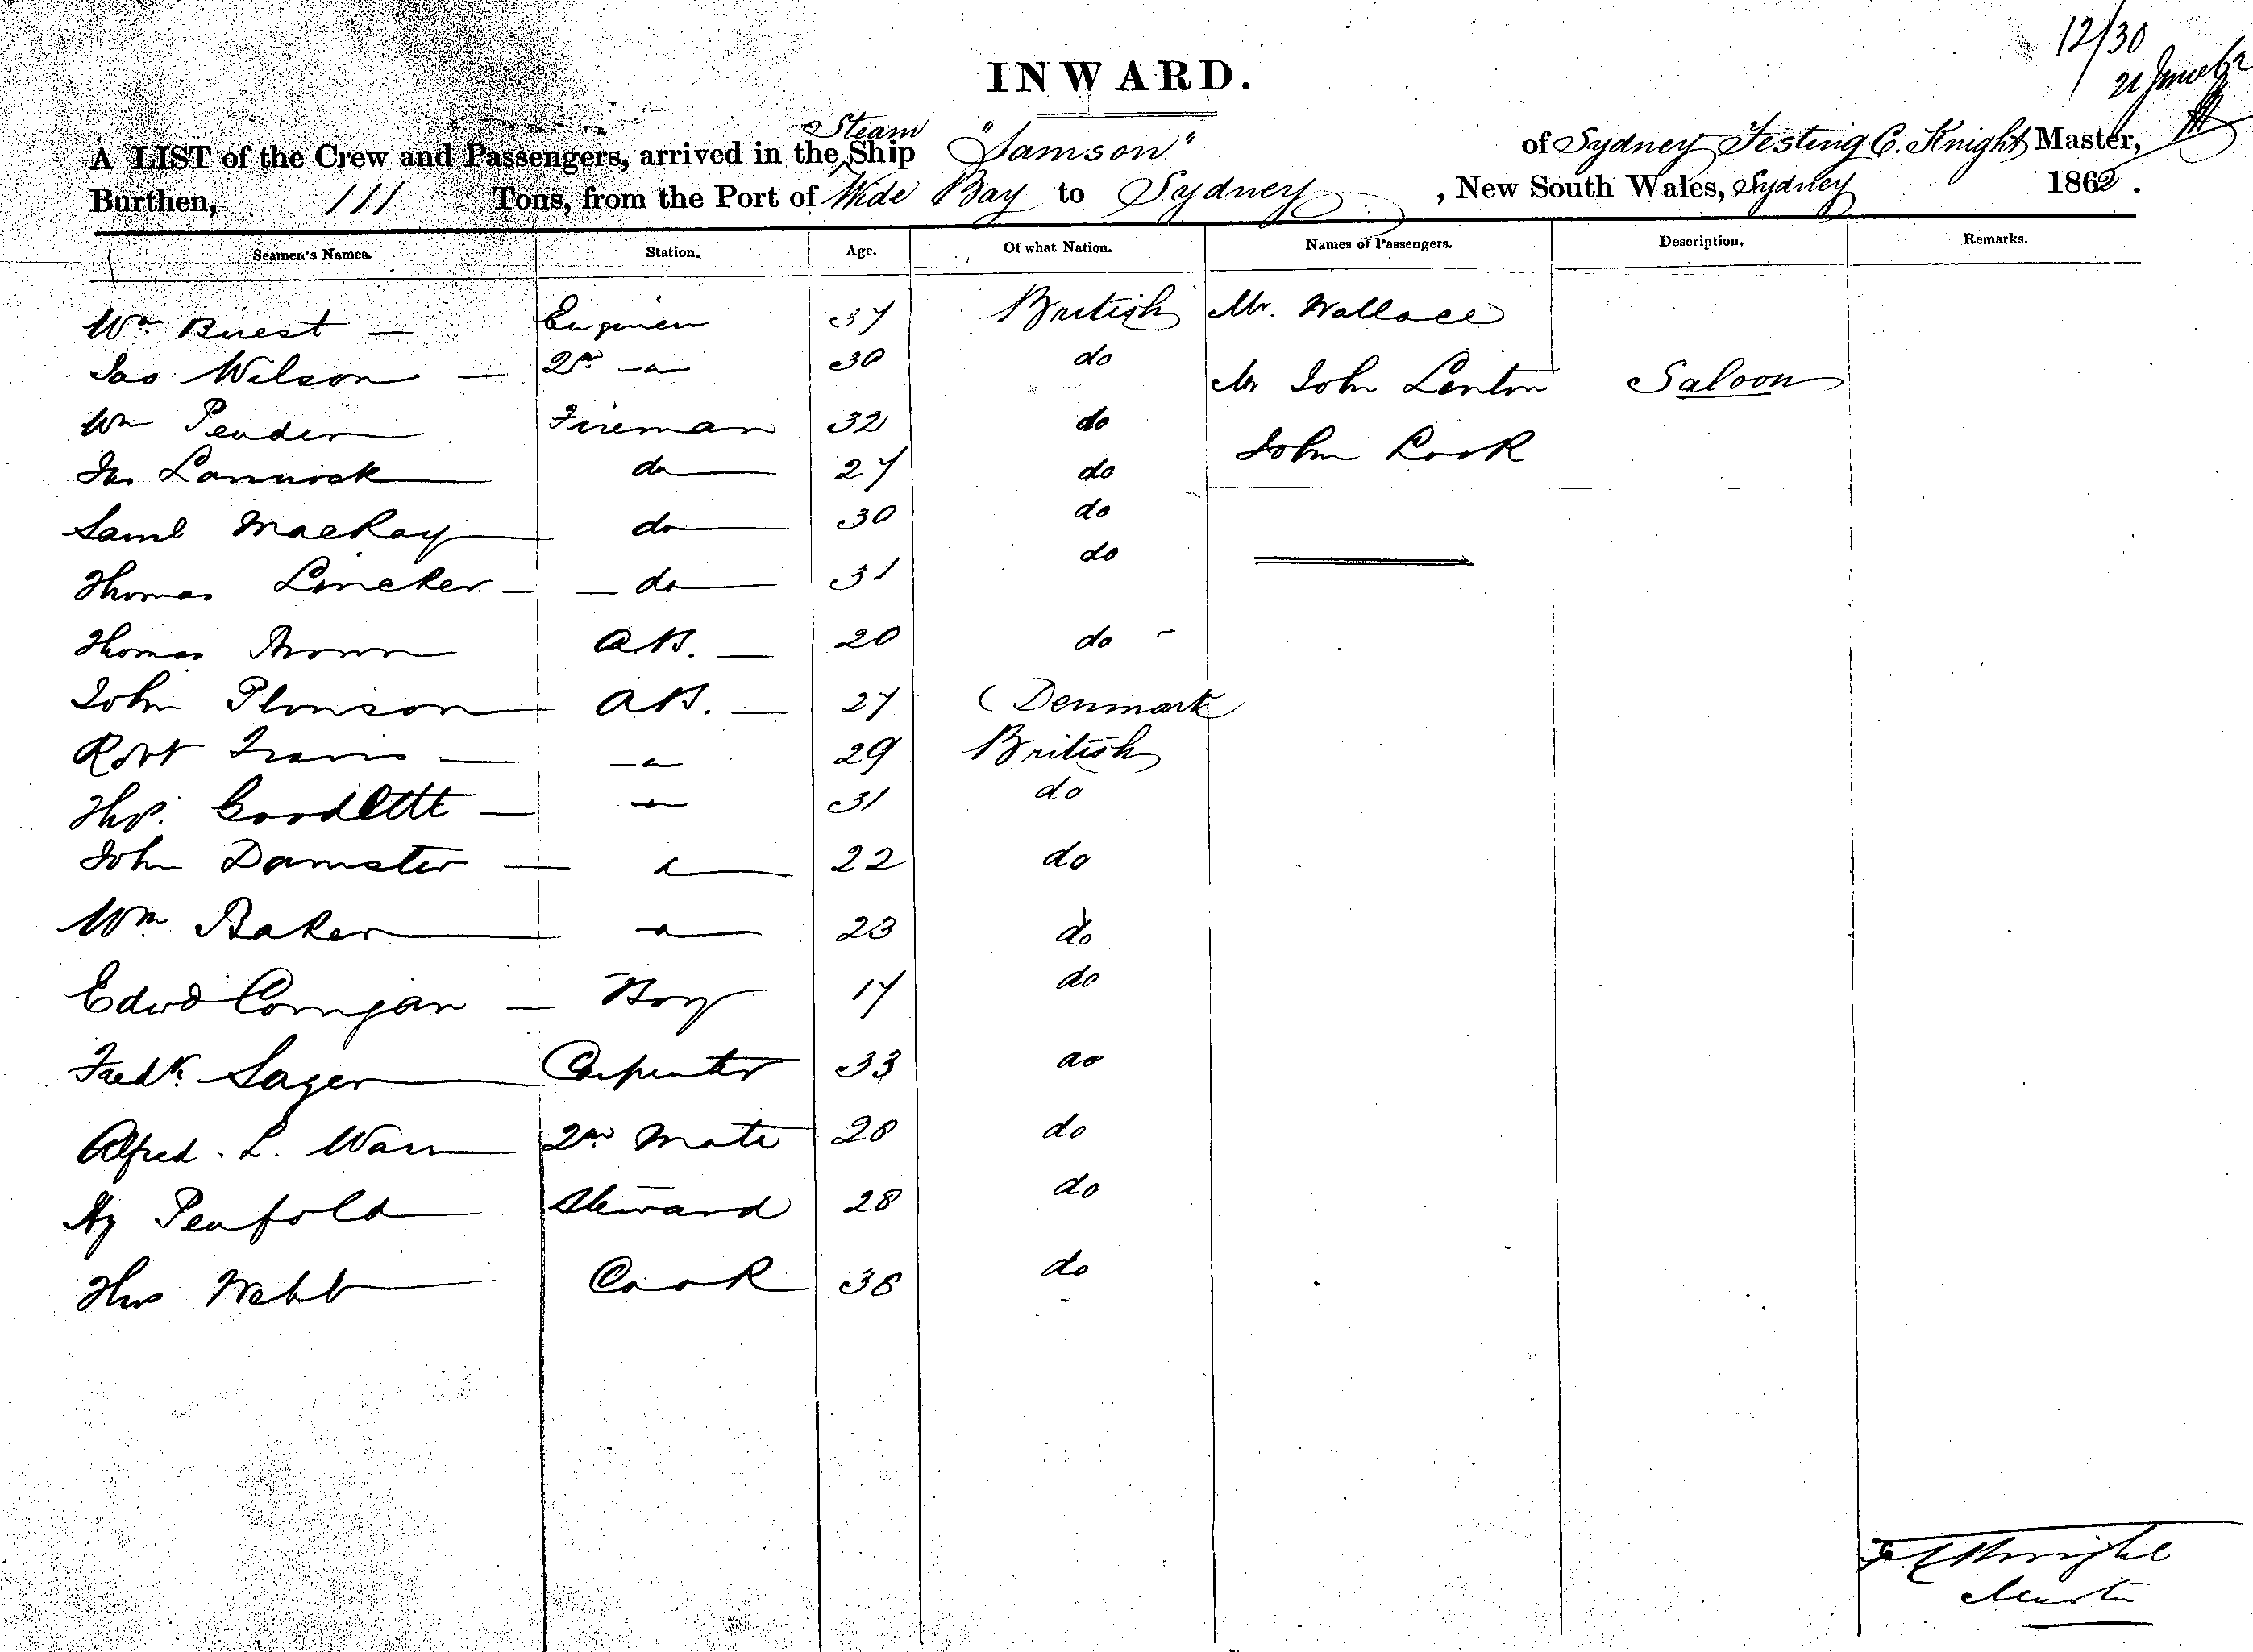 12/30
21 June 62
INWARD.
A LIST of the Crew and Passengers, arrived in the Steam Ship "Samson" of Sydney Festing C. Knight Master,
Burthen, 111 Tons, from the Port of Wide Bay to Sydney, New South Wales, Sydney 1862.
Seamen's Names. Station. Age. Of what Nation. Names of Passengers. Description. Remarks.
Wm Engineer 37 British Mr. Wallace
Jas Wilson 2nd 30 do
Mr John Lenton Saloon
Wm Pender Fireman 32 do
John Cook
Jas do 27 do
Saml MacKay do 30 do
Thomas Lincker do 31 do
Thomas Brown A.B. 20 do
John Plonson A.B. 27 Denmark
Robt Travis 29 British
Ths. Goodlette 31 do
John Damster 22 do
Wm Baker 23 do
Edwd Corrigan Boy 17 do
Fredk. Sager Carpenter 33 do
Alfred L. Warn 2nd Mate 28 do
Hy Penfold Steward 28 do
Thos Webb Cook 38 do
F C Knight
Master